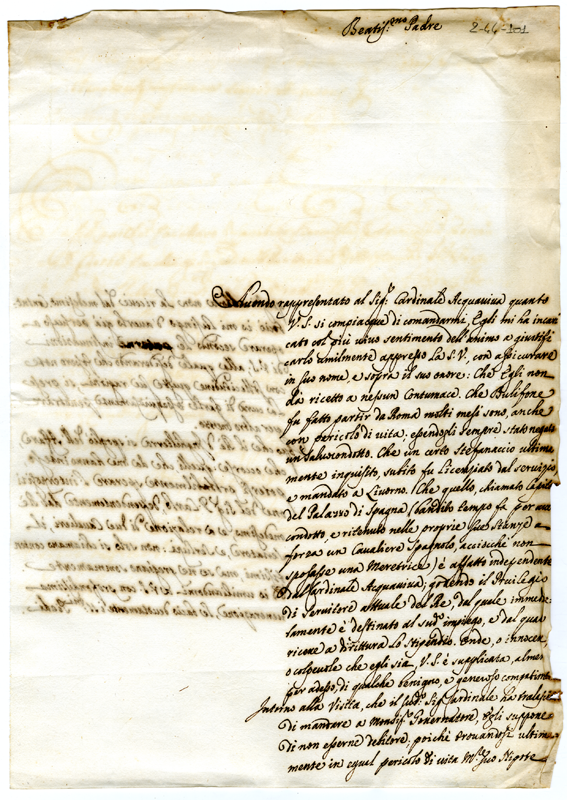 Beatis.mo Padre
2-44-101
Avendo rappresentato al Sig.r Cardinale Acquaviva quanto
V. S. si compiacque di comandarmi, Egli mi ha incari
cato col più vivo sentimento dell'animo a giustifi
carlo umilmente appresso La S. V., con assicurare
in suo nome, e sopra il suo onore: Che Egli non
dà ricetto a nessun Contumace. Che Bulifone
fu fatto partir da Roma molti mesi sono, anche
con pericolo di vita, essendogli sempre stato negato
un Salvacondotto. Che un certo Stefanaccio ultima
mente inquisito, subito fu Licenziato dal servizio,
e mandato a Livorno. Che quello, chiamato
del Palazzo di Spagna (bandito tempo fa per aver
condotto, e ritenuto nelle proprie sue stanze a
forza un Cavaliere Spagnolo, acciocchè non
sposasse una Meretrice) è affatto independente
dal Cardinale Acquaviva; godendo il Privilegio
di Servitore attuale del Re, dal quale immedia
tamente è destinato al sud.o impiego, e dal qual
riceve a dirittura lo Stipendio. Onde, o innocen
o colpevole che egli sia, V. S. è supplicata, almen
per adesso, di qualche benigno, e generoso compatim
Intorno alla Visita, che il sud.o Sig.r Cardinale ha tralas
di mandare a Monsig.r Governatore, Egli suppone
di non esserne debitore; poichè trovandosi ultima
mente in egual pericolo di vita M.r suo Nipote